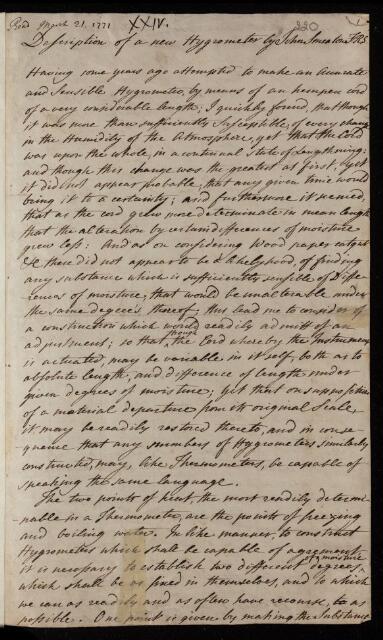 Read March 21. 1771
XXIV.
220
1
Description of a new Hygrometer by John Smeaton FRS
Having some years ago attempted to make an accurate
and Sensible Hygrometer, by means of an hempen cord
of a very considerable length; I quickly found, that though
it was more than sufficiently susceptible, of every change
in the Humidity of the Atmosphere, yet that the Cord
was upon the whole, in a continual State of Lengthning:
and though this change was the greatest at first, yet
it did not appear probable, that any given time would
bring it to a certainty; and furthermore it seemed,
that as the cord grew more determinate in mean length
that the alteration by certain differences of moisture
grew less: And as on considering Wood paper catgut
&c there did not appear to be a likelyhood, of finding
any substance which is sufficiently sensible of Diffe-
rences of moisture, that would be unalterable under
the same degrees thereof; this lead me to consider of
a construction which would readily admitt of an
adjustment; so that, though the Cord whereby the instrument
is actuated, may be variable in itself, both as to
absolute length, and difference of length under
given degrees of moisture; yet that on supposition
of a material departure from its original Scale,
it may be readily restored thereto, and in conse
quence that any numbers of Hygrometers similarly
constructed, may, like Thermometers, be capable of
speaking the same language.
The two points of heat, the most readily determi-
nable in a Thermometer, are the points of freezing
and boiling water. In like manner, to construct
Hygrometers which shall be capable of agreement,
it is necessary to establish two different degrees of moisture
which shall be as fixed in themselves, and to which
we can as readily and as often have recourse, to as
possible. One point is given by making the Substance